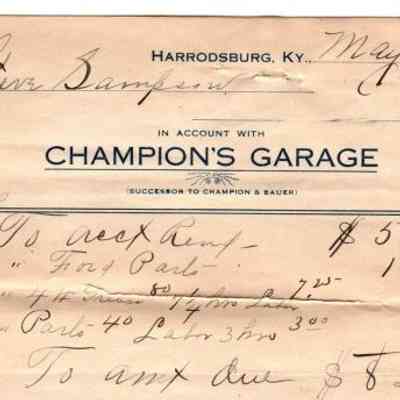 HARRODSBURG, KY., May
Sampson
IN ACCOUNT WITH
CHAMPION'S GARAGE
(SUCCESSOR TO CHAMPION & BAUER)
To acct Rend - $ 5
" Ford Parts 1
" 80 7.25
" Parts 40 Labor 3 hrs 3.00
To amt due $ 8